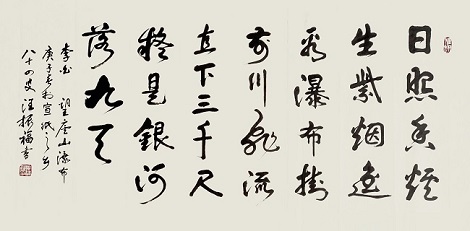 日照香炉
生紫烟遥
看瀑布掛
前川飞流
直下三千尺
疑是銀河
落九天
李白 望庐山瀑布
庚子春 宣纸之乡
八十四叟 汪振福书